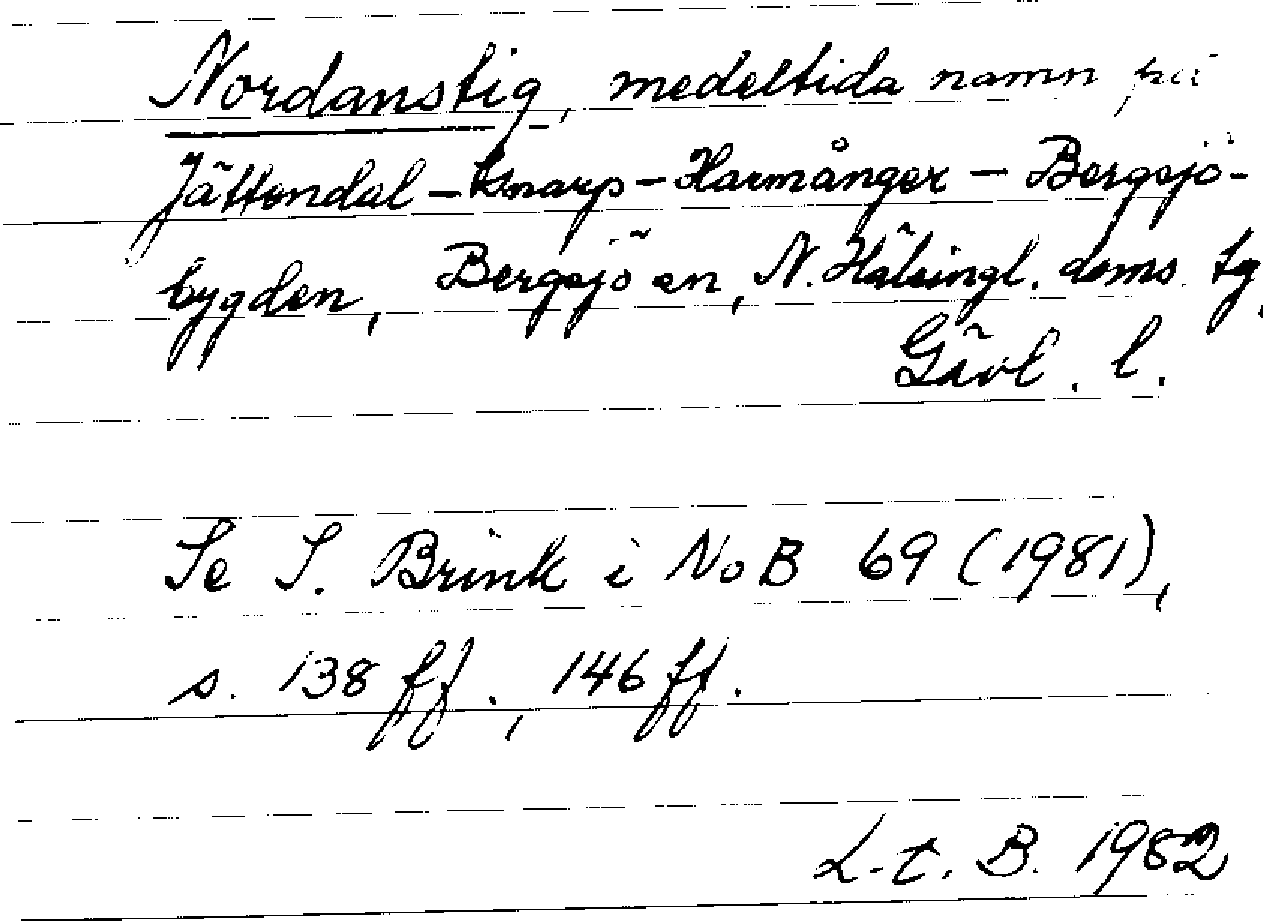 Nordanstig, medeltida namn på
Jättendal – Gnarp – Harmånger – Bergsjö-
bygden, Bergsjö en, N. Hälsingl. doms. tg,
Gävl. l.
Se S. Brink i NoB 69 (1981),
s. 138 ff., 146 ff.
L-t. B. 1982